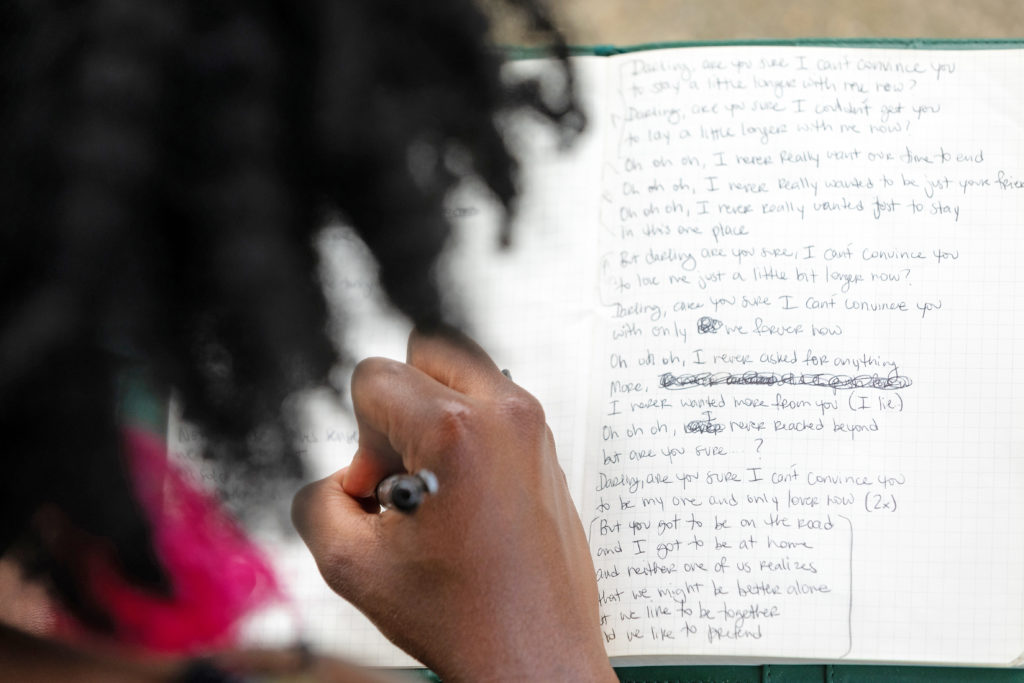 Darling, are you sure I can't convince you
to stay a little longer with me now?
Darling, are you sure I couldn't get you
to lay a little longer with me now?
Oh oh oh, I never really want our time to end
Oh oh oh, I never really wanted to be just your frien
Oh oh oh, I never really wanted just to stay
in this one place
But darling are you sure, I can't convince you
to love me just a little bit longer now?
Darling, are you sure I can't convince you
with only we forever now
Oh oh oh, I never asked for anything
More,
I never wanted more from you (I lie)
Oh oh oh, I never reached beyond
but are you sure...?
Darling, are you sure I can't convince you
to be my one and only lover now (2x)
But you got to be on the road
and I got to be at home
and neither one of us realizes
that we might be better alone
we like to be together
we like to pretend